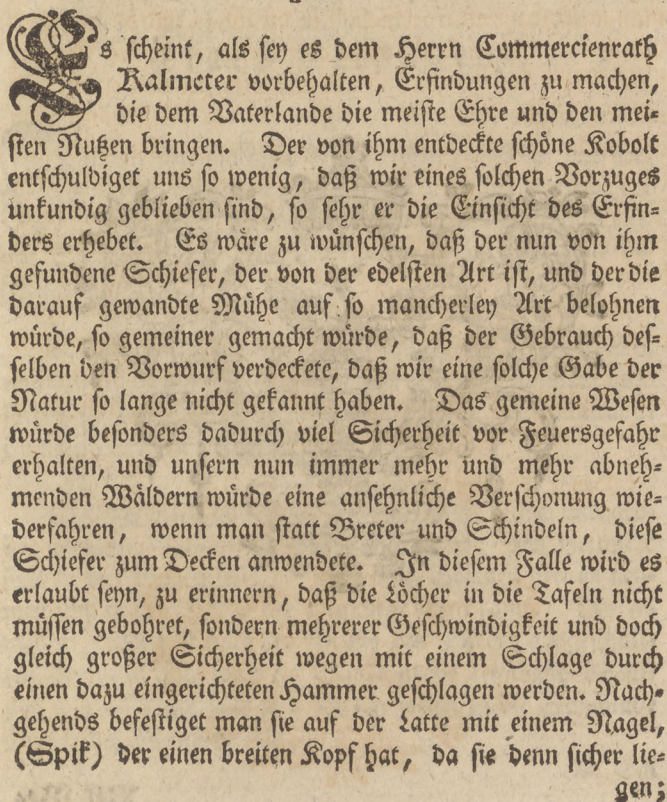 Es scheint, als sey es dem Herrn Commercienrath
Kalmeter vorbehalten, Erfindungen zu machen,
die dem Vaterlande die meiste Ehre und den mei-
sten Nutzen bringen. Der von ihm entdeckte schöne Kobolt
entschuldiget uns so wenig, daß wir eines solchen Vorzuges
unkundig geblieben sind, so sehr er die Einsicht des Erfin-
ders erhebet. Es wäre zu wünschen, daß der nun von ihm
gefundene Schiefer, der von der edelsten Art ist, und der die
darauf gewandte Mühe auf so mancherley Art belohnen
würde, so gemeiner gemacht würde, daß der Gebrauch des-
selben den Vorwurf verdeckete, daß wir eine solche Gabe der
Natur so lange nicht gekannt haben. Das gemeine Wesen
würde besonders dadurch viel Sicherheit vor Feuersgefahr
erhalten, und unsern nun immer mehr und mehr abneh-
menden Wäldern würde eine ansehnliche Verschonung wie-
derfahren, wenn man statt Breter und Schindeln, diese
Schiefer zum Decken anwendete. In diesem Falle wird es
erlaubt seyn, zu erinnern, daß die Löcher in die Tafeln nicht
müssen gebohret, sondern mehrerer Geschwindigkeit und doch
gleich großer Sicherheit wegen mit einem Schlage durch
einen dazu eingerichteten Hammer geschlagen werden. Nach-
gehends befestiget man sie auf der Latte mit einem Nagel,
(Spik) der einen breiten Kopf hat, da sie denn sicher lie-
gen;